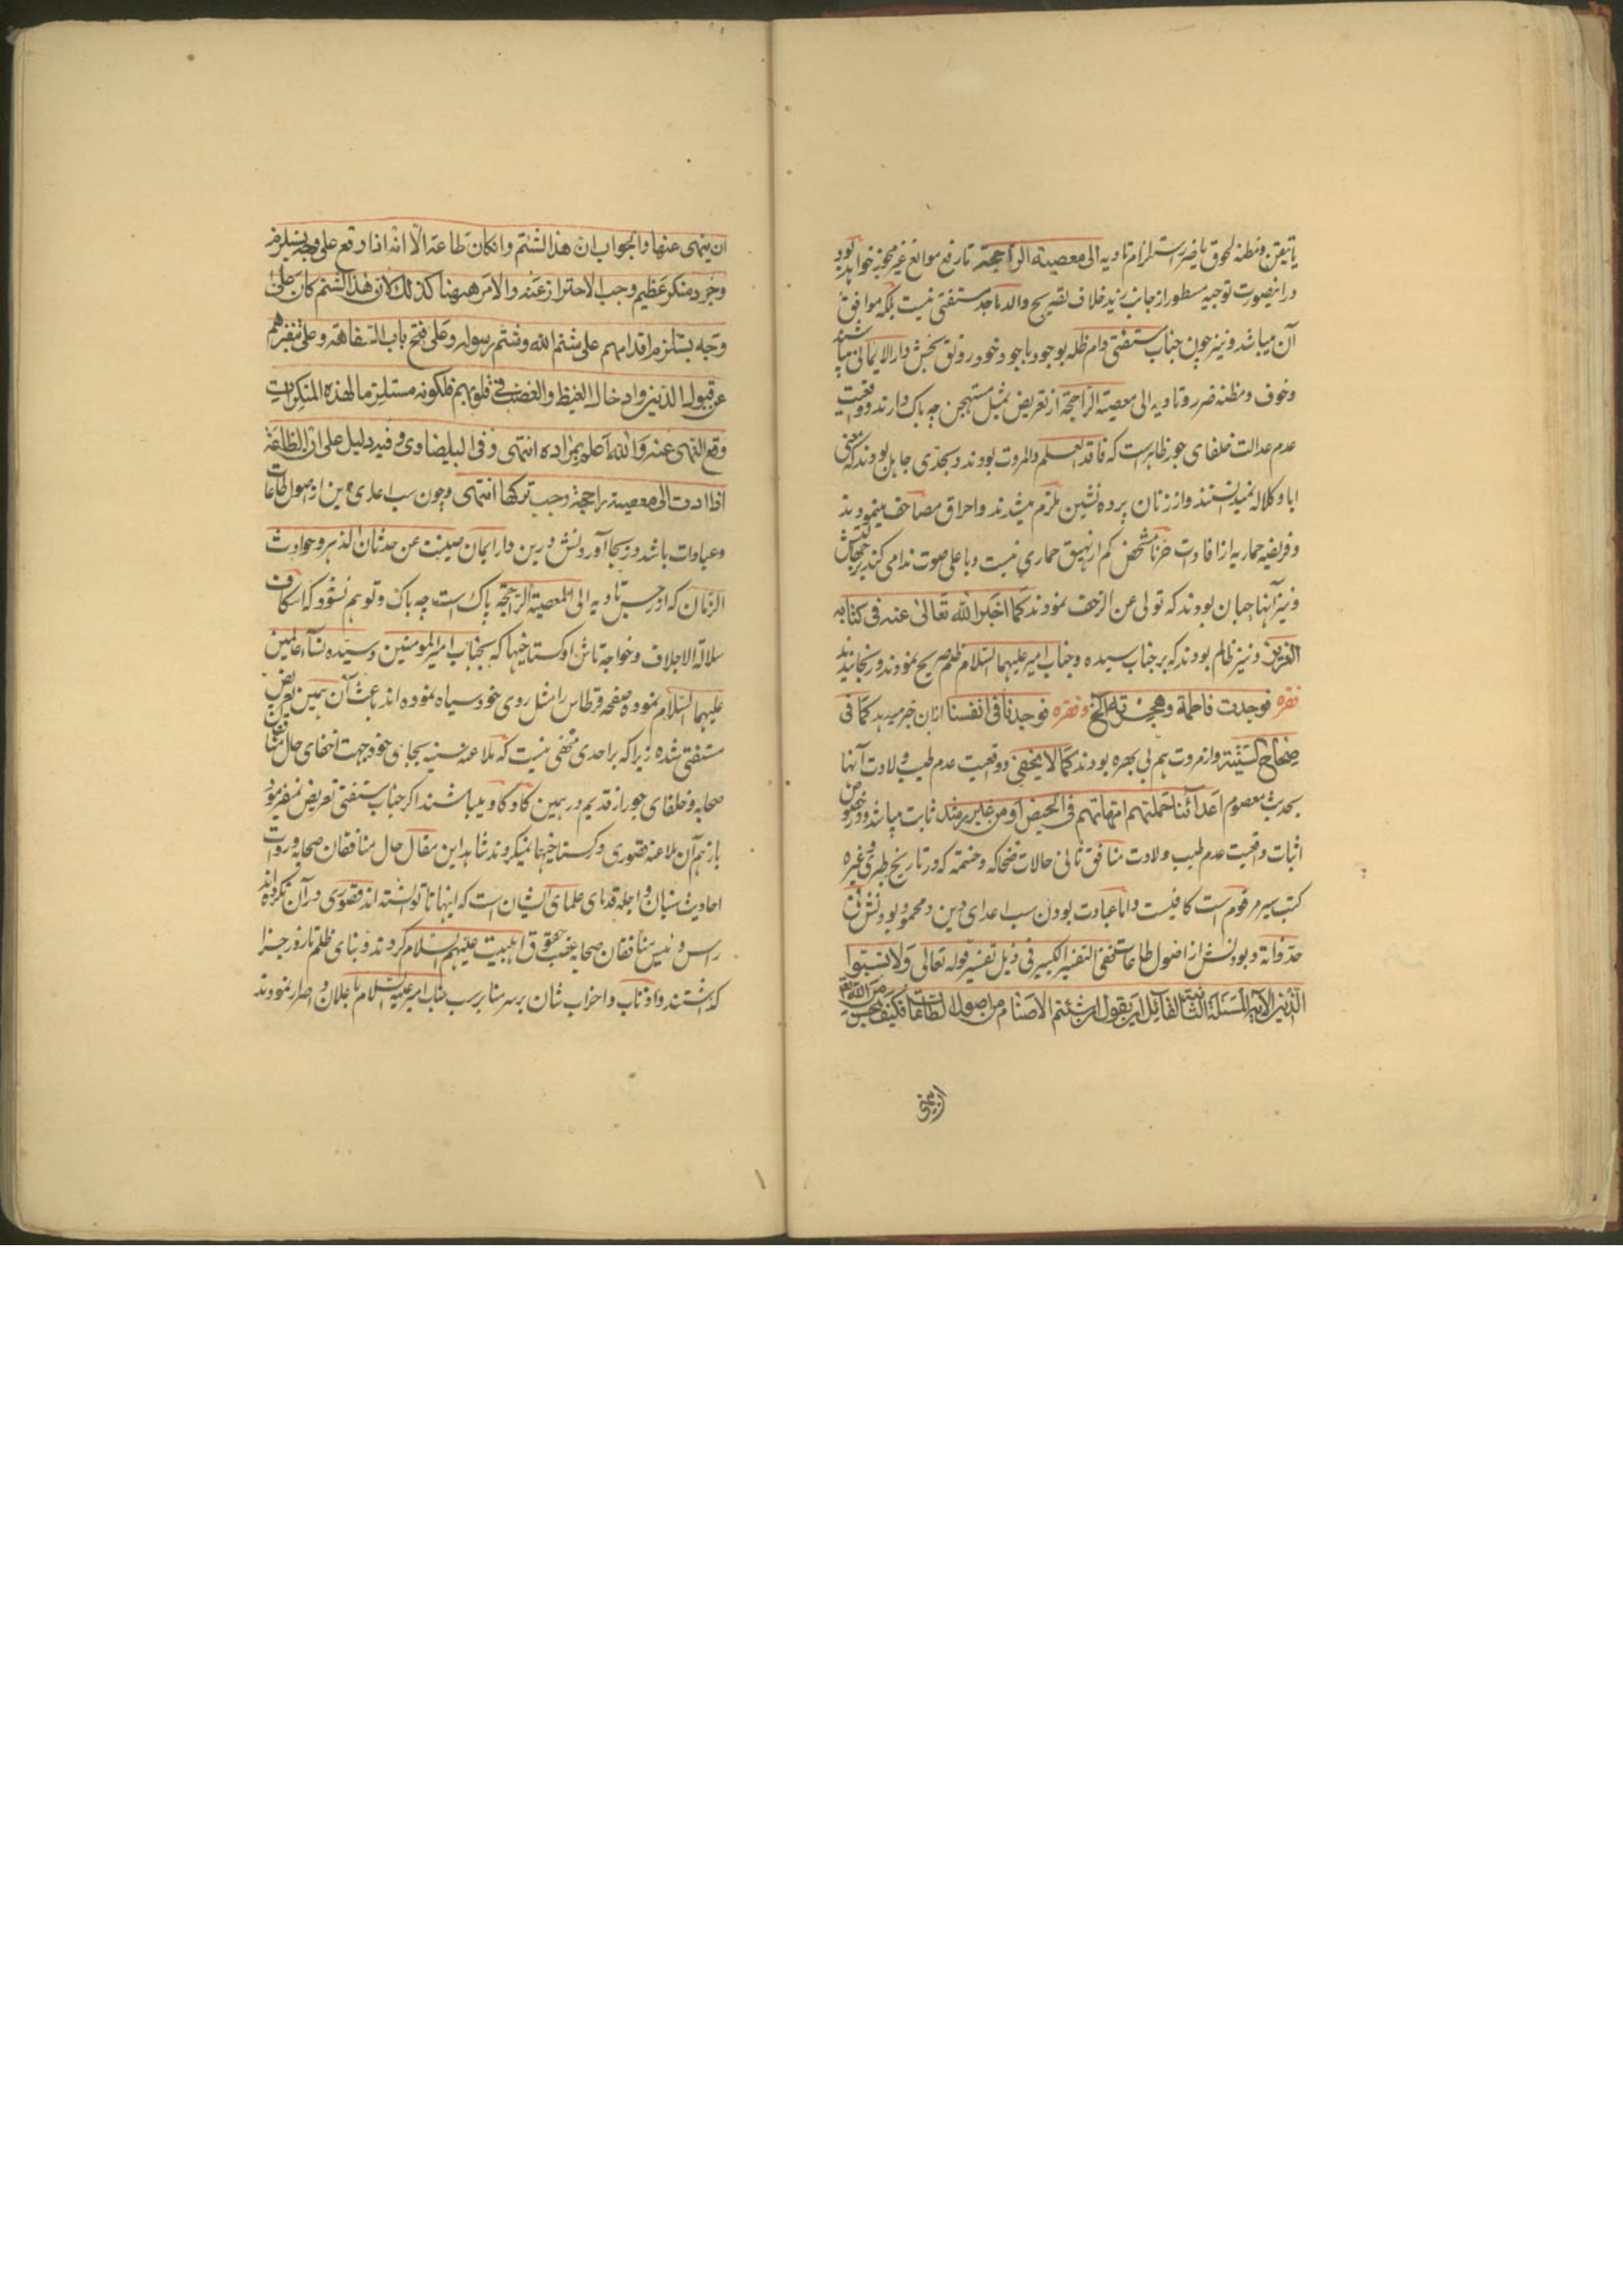 یا تیقن و مظنه لحوق یا ضرر استلزام تادیه الی معصیة الراجحة تا رفع موانع غیر مجوزه خواهد بود
درینصورت توجیه مسطور از جانب یزید خلاف تصریح والد ماجد مستفتی نیست بلکه موافق
آن میباشد و نیز چون جناب مستفتی دام ظله بوجود باجود خود رونق بخش دار الایمانی میباشند
و خوف و مظنه ضرر و تادیه الی معصیة الراجحة از تعریض بمثل مستهجن چه باک دارند و واقعیت
عدم عدالت خلفای جور ظاهر است که فاقد العلم والمروت بودند و بحدی جاهل بودند که معنی
ابا و کلاله نمیدانستند و از زنان پرده نشین ملزم میشدند و احراق مصاحف مینمودند
و فریضه حماریه از افادت شخص کم از نهیق حماری نیست و با علی صوت ندا می کند بر
و نیز آنها جبان بودند که تولی عن الزحف نمودند کما اخبر الله تعالی عنه فی کتابه
العزیز و نیز ظالم بودند که بر جناب سیده و جناب امیر علیهما السلام ظلم صریح نمودند و رنجانیدند
فقره فوجدت فاطمة وهجرته الخ و فقره فوجدنا فی انفسنا ازان خبر میدهد کما فی
صحاح السنیة و از مروت هم بی بهره بودند کما لا یخفی و واقعیت عدم طیب ولادت آنها
بحدیث معصوم اعدائنا حملتهم امهاتهم فی الحیض او من غیر رشد ثابت میباشد و در خصوص
اثبات واقعیت عدم طیب ولادت منافق ثانی حالات ضحاکه و حنتمه که در تاریخ طبری و غیره
کتب سیر مرقوم است کافیست و اما عبادت بودن سب اعدای دین و محمود بودنش فی
حد ذاته و بودنش از اصول طاعات ففی التفسیر الکبیر فی ذیل تفسیر قوله تعالی ولا تسبوا
الذین الآیه المسئلة الثانیة لقائل ان یقول ان شتم الاصنام من اصول الطاعات فکیف یحسن من الله تعالی
ان ینهی
ان ینهی عنها والجواب ان هذا الشتم وان کان طاعة الا انه اذا وقع علی وجه یستلزم
وجود منکر عظیم وجب الاحتراز عنه والامر ههنا کذلک لان هذا الشتم کان علی
وجه یستلزم اقدامهم علی شتم الله وشتم رسوله وعلی فتح باب السفاهة وعلی تنفیرهم
عن قبول الدین وادخال الغیظ والغضب فی قلوبهم فلکونه مستلزما لهذه المنکرات
وقع النهی عنه والله اعلم بمراده انتهی وفی البیضاوی وفیه دلیل علی ان الطاعة
اذا ادت الی معصیة راجحة وجب ترکها انتهی و چون سب اعدای دین از اصول طاعات
و عبادات باشد و بجا آوردنش درین دار ایمان صینت عن حدثان الدهر و حوادث
الزمان که از رجس تادیه الی المعصیة الراجحة پاک است چه باک و توهم نشود که اسکاف
سلالة الاجلاف و خواجه تاش او گستاخیها که بجناب امیر المومنین و سیده نساء عالمین
علیهما السلام نموده صفحه قرطاس را مثل روی خود سیاه نموده اند باعث آن همین تعریض
مستفتی شده زیرا که بر احدی مخفی نیست که ملاعنه سنیه بجای خود جهت اخفای حال منافقان
صحابه و خلفای جور از قدیم در همین کاو کاو میباشند اگر جناب مستفتی تعریض نمیفرمود
باز هم آن ملاعنه قصوری در گستاخیها نمیکردند شاهد این مقال حال منافقان صحابه و روات
احادیث شان و اجله قدمای علمای ایشان است که اینها تا توانسته اند قصوری در آن نکرده اند
راس و رئیس منافقان صحابه غصب حقوق اهلبیت علیهم السلام کردند و بنای ظلم تا روز جزا
گذاشتند و اذناب و احزاب شان بر سر منابر سب جناب امیر علیه السلام باعلان و اصرار نمودند